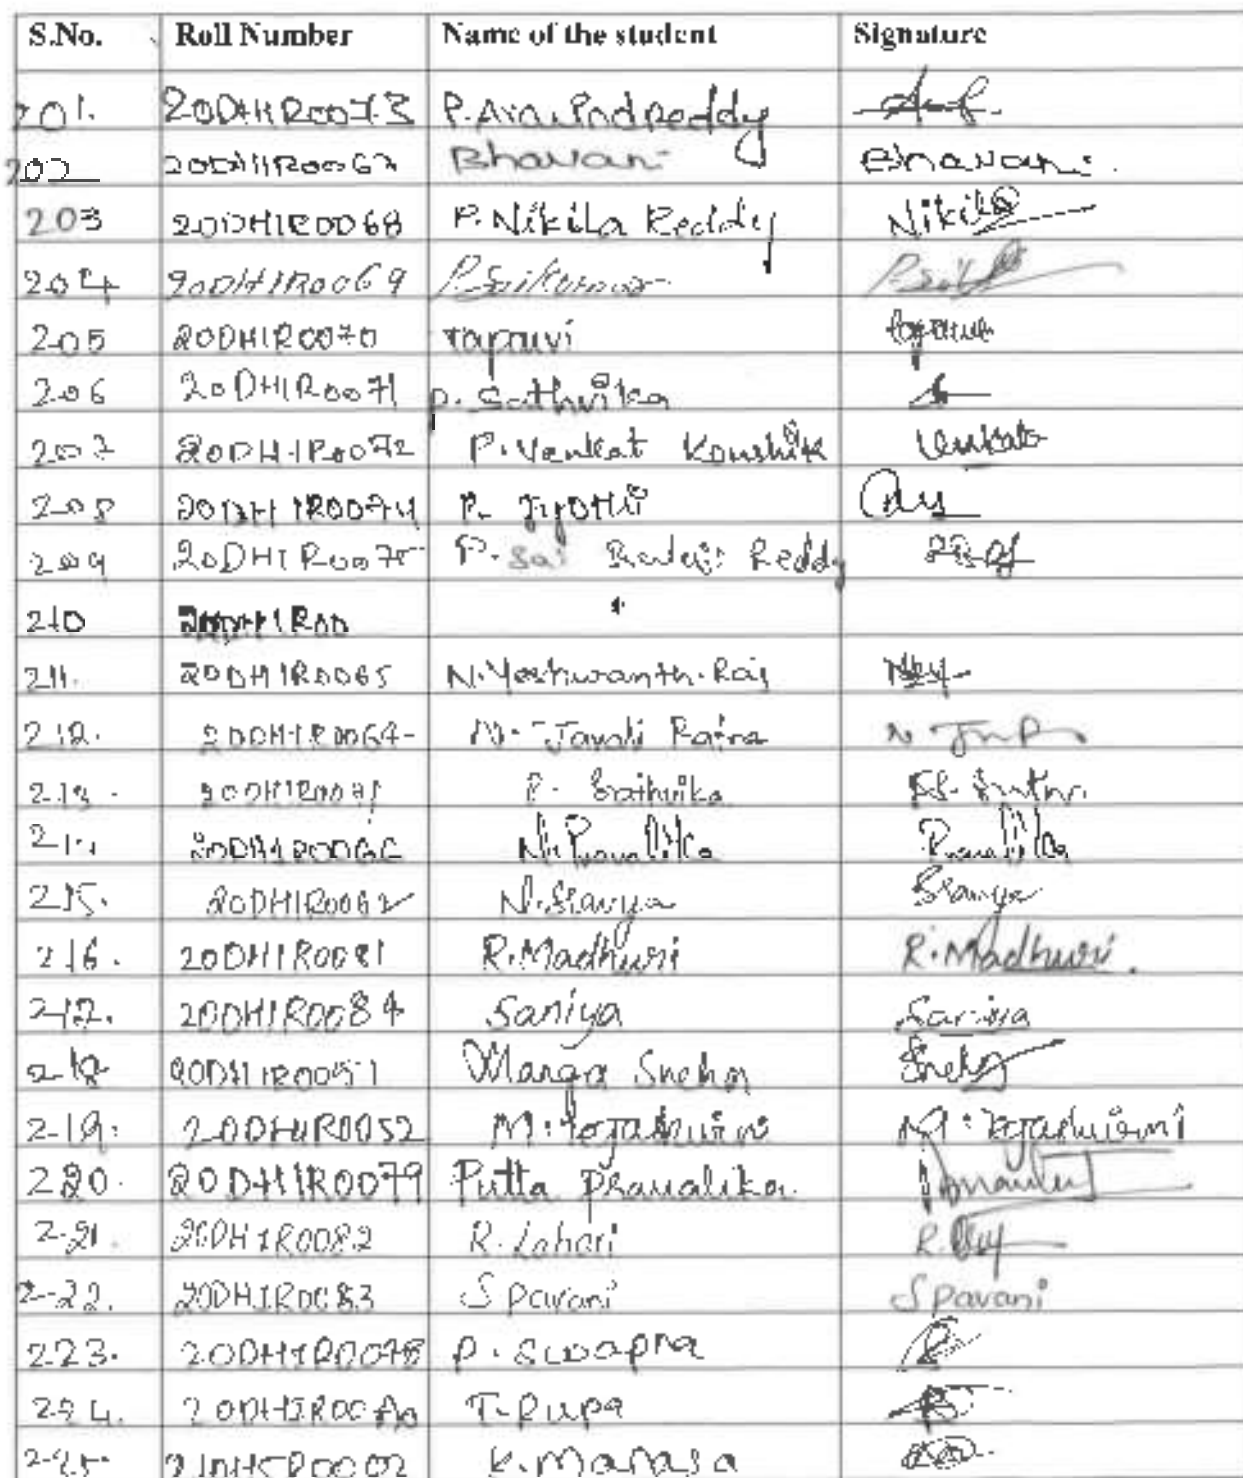 S.No. Roll Number Name of the student Signature
201. 20DH1R0073 P. Aravind Reddy
202 20DH1R0067 Bhavani Bhavani.
203 20DH1R0068 P. Nikila Reddy Nikila
204 20DH1R0069 P. Saikumar
205 20DH1R0070
206 20DH1R0071 p. Sathvika
207 20DH1R0072 P. Venkat Koushik Venkat
208 20DH1R0074 P. Jyothi
209 20DH1R0075 P. Sai Reddy
210 20DH1R00
211. 20DH1R0065 N. Yeshwanth Raj
212. 20DH1R0064 N. Ratna
213. P. Srathvika
214 20DH1R0066 N. Pravalika Pravalika
215. 20DH1R0062 N. Sravya Sravya
216. 20DH1R0081 R. Madhuri R. Madhuri.
217. 20DH1R0084 Saniya Saniya
218 20DH1R0051 Manga Sneha Sneha
219. 20DH1R0052 M. Tejaswini M. Tejaswini
220. 20DH1R0079 Putta Pravalika
221. 20DH1R0082 R. Lahari R.
222. 20DH1R0083 S Pavani S Pavani
223. 20DH1R0078 P. Swapna
224. 20DH1R00 T. Rupa
225. K. Manasa